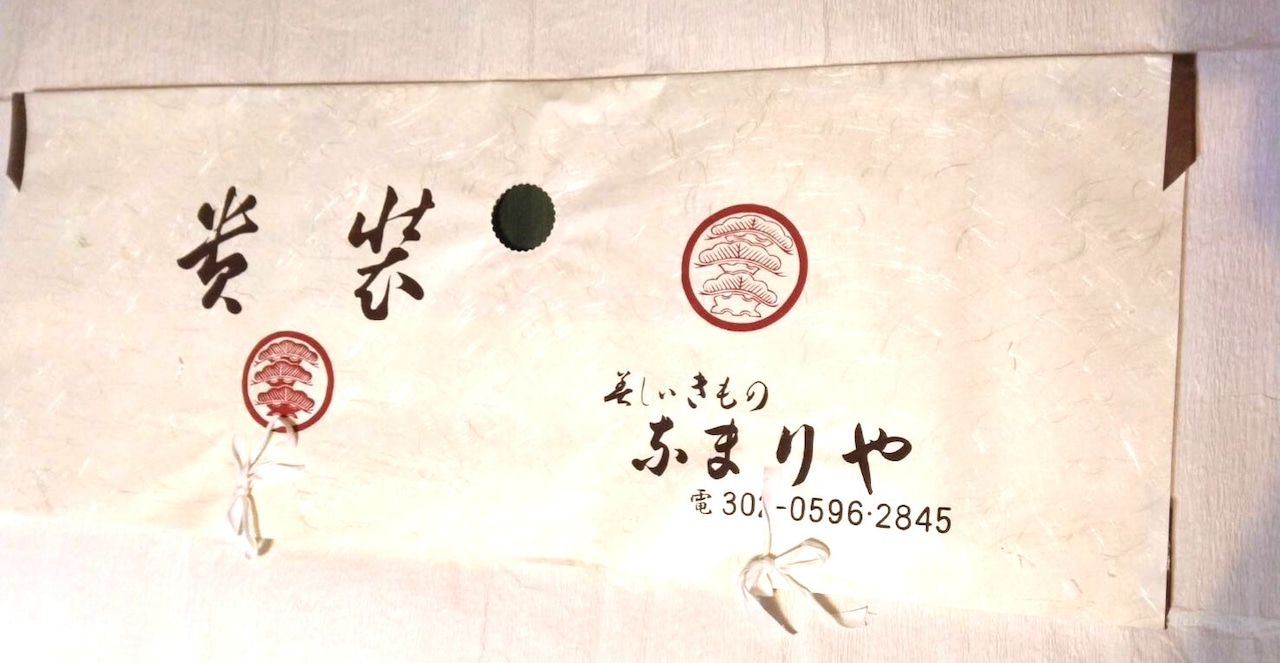 貴装
美しいきもの
なまりや
電302-0596·2845